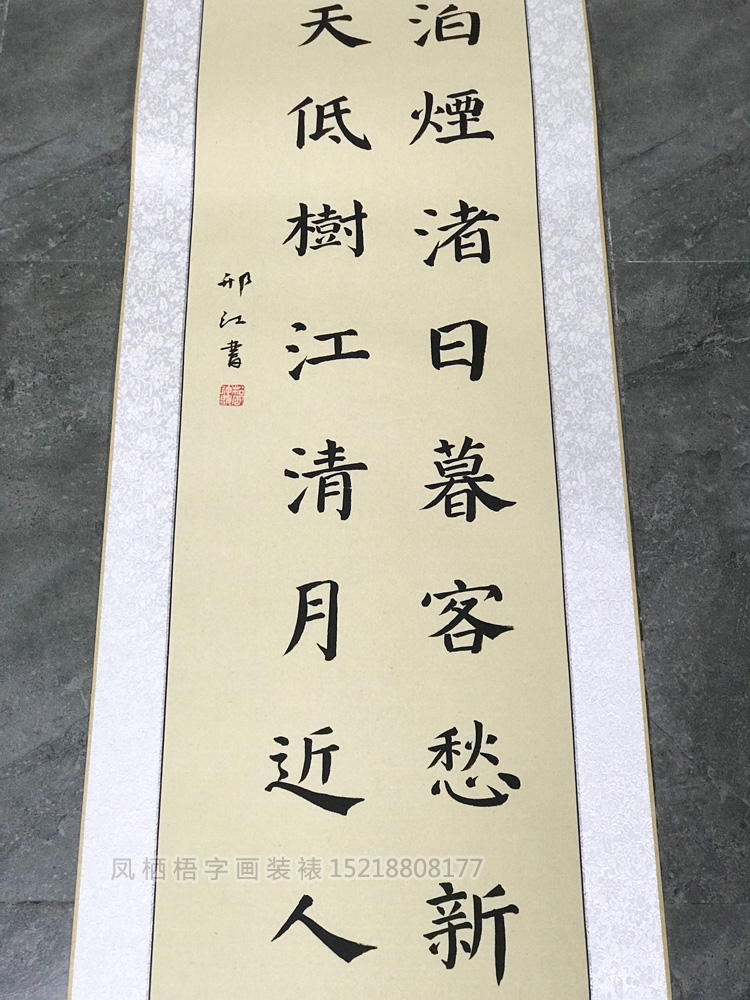 泊煙渚日暮客愁新
天低樹江清月近人
邢江書
凤栖梧字画装裱15218808177